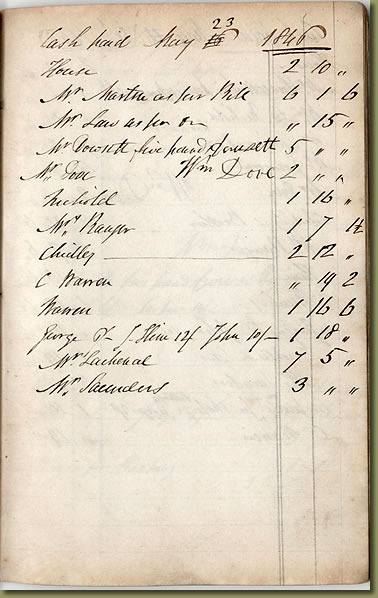 23
Cash paid May 16 1846
House 2 10 "
Mr. Martin as per Bill 6 1 6
Mr. Law as per " 15 "
Mr Dowsett five pound 5 " "
Mr. Dove Wm Dove 2 " "
1 16 "
Mrs. Ranger 1 7
Chidley 2 12 "
C Warren " 19 2
Warren 1 16 6
George 12/ John 10/- 1 18 "
Mr. Lachenal 7 5 "
Mr. Saunders 3 " "